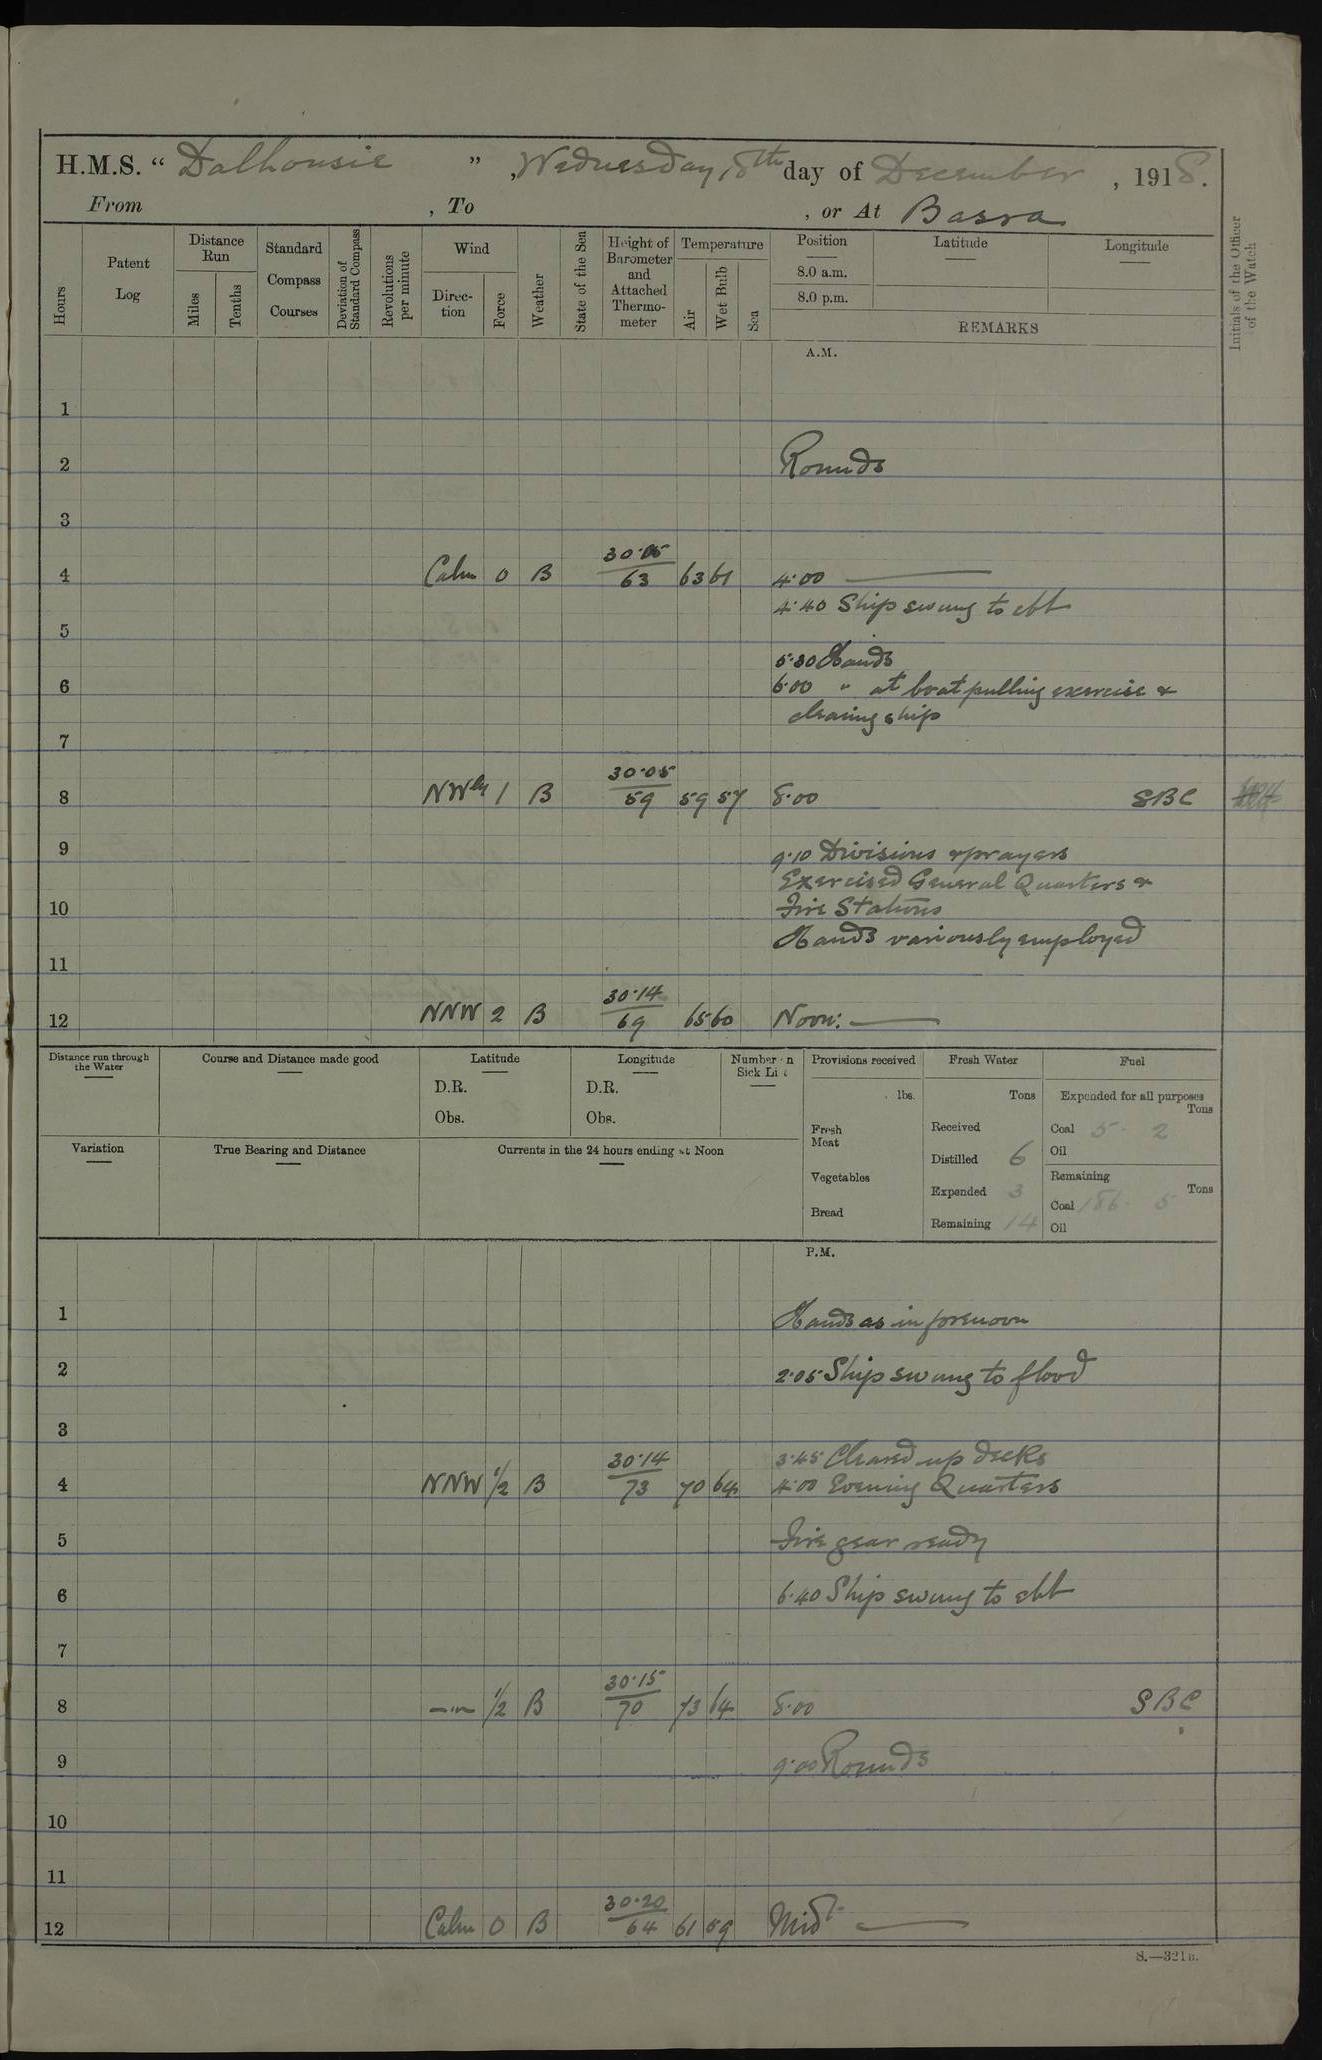 H.M.S. “ Dalhousie ” , Wednesday, 18th day of December , 1918.
From , To , or At Basra
Hours
Patent Log
Distance Run
Miles
Tenths
Standard Compass Courses
Deviation of Standard Compass
Revolutions per minute
Wind
Direc-tion
Force
Weather
State of the Sea
Height of Barometer and Attached Thermo-meter
Temperature
Air
Wet Bulb
Sea
Position
8.0 a.m.
8.0 p.m.
Latitude
Longitude
REMARKS
Initials of the Officer of the Watch
A.M.
1
2 Rounds
3
30·05
4 Calm 0 B 63 63 61 4·00
4·40 Ship swung to ebb
5
5·30 Hands
6 6·00 " at boat pulling exercise &
cleaning ship
7
30·05
8 NWly 1 B 59 59 57 8·00 SBC
9 9·10 Divisions & prayers
Exercised General Quarters &
10 Fire Stations
Hands variously employed
11
30·14
12 NNW 2 B 69 65 60 Noon:
Distance run through the Water
Course and Distance made good
Latitude
D.R.
Obs.
Longitude
D.R.
Obs.
Number on Sick List
Provisions received
lbs.
Fresh Meat
Vegetables
Bread
Fresh Water
Tons
Received
Distilled 6
Expended 3
Remaining 14
Fuel
Expended for all purposes
Tons
Coal 5· 2
Oil
Remaining
Tons
Coal 186· 5
Oil
Variation
True Bearing and Distance
Currents in the 24 hours ending at Noon
P.M.
1 Hands as in forenoon
2 2·05 Ship swung to flood
3
30·14 3·45 Cleared up decks
4 NNW 1/2 B 73 70 64 4·00 Evening Quarters
5 Fire gear ready
6 6·40 Ship swung to ebb
7
30·15
8 —"— 1/2 B 70 73 64 8·00 SBC
9 9·00 Rounds
10
11
30·20
12 Calm 0 B 64 61 59 Midt.
S.—321B.